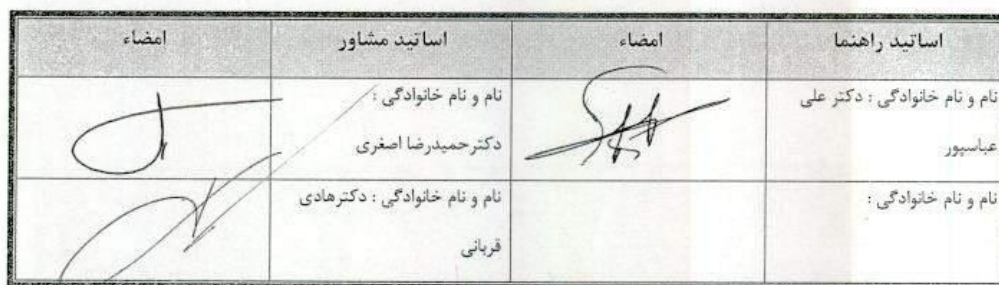 اساتید راهنما امضاء اساتید مشاور امضاء
نام و نام خانوادگی : دکتر علی
عباسپور
نام و نام خانوادگی :
دکترحمیدرضا اصغری
نام و نام خانوادگی :
نام و نام خانوادگی : دکترهادی
قربانی